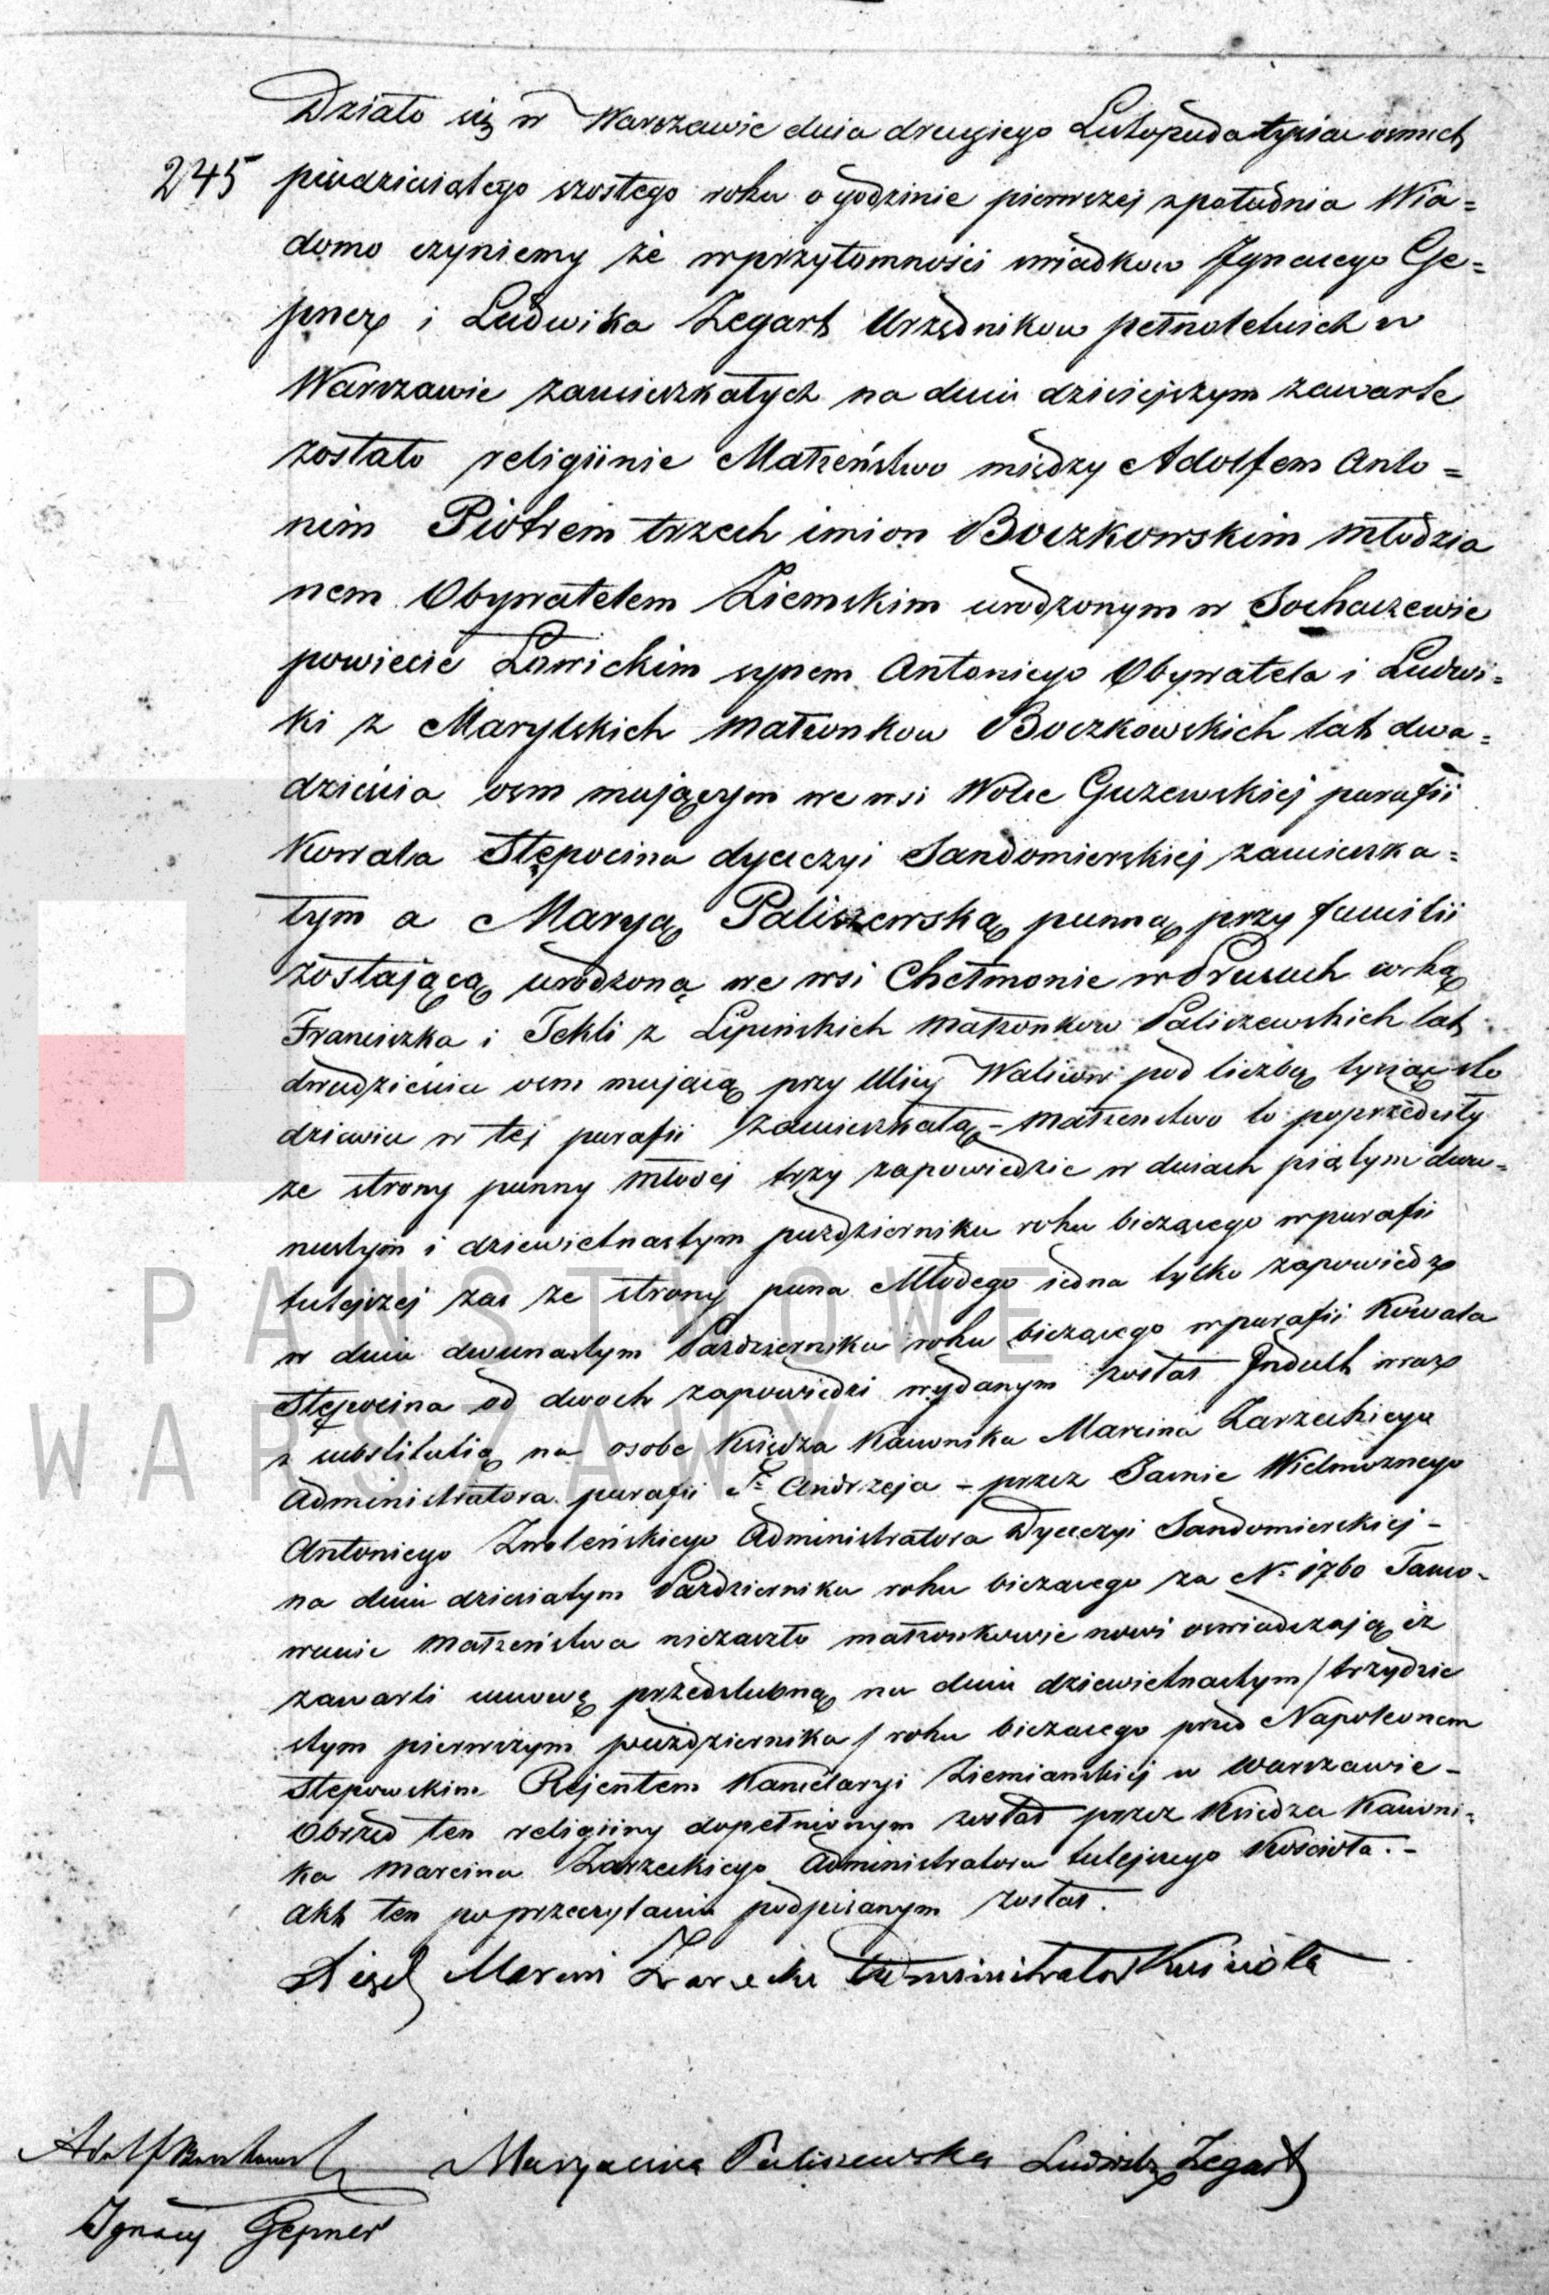 Działo się w Warszawie dnia drugiego Listopada tysiac osmset
245 piędziesiątego szostego roku o godzinie pierwszej z południa Wia=
domo czyniemy że w przytomności swiadkow Ignacego Ge=
pner i Ludwika Zegart Urzędnikow pełnoletnich w
Warszawie zamieszkałych na dniu dzisiejszym zawarte
zostało religiinie Małżeństwo między Adolfem Anto=
nim Piotrem trzech imion Boczkowskim młodzia
nem Obywatelem Ziemskim urodzonym w Sochaczewie
powiecie Łowickim synem Antoniego Obywatela i Ludwi=
ki z Marylskich małżonkow Boczkowskich lat dwa=
dzieścia osm mającym we wsi Wolce Guzewskiej parafii
Kowala Stępocina dyecezyi Sandomierskiej zamieszka=
łym a Maryą Paliszewską panną przy familii
zostającą urodzoną we wsi Chełmonie w Prusach corką
Franciszka i Tekli z Lipińskich małżonkow Paliszewskich lat
dwadzieścia osm mającą przy Ulicy Walicow pod liczbą tysiąc sto
dziewięc w tej parafii zamieszkałą – Małżenstwo to poprzedziły
ze strony panny młodej trzy zapowiedzie w dniach piątym dwu=
nastym i dziewietnastym października roku bieżącego w parafii
tutejszej zas ze strony pana Młodego iedna tylko zapowiedz
w dniu dwunastym Października roku bieżącego w parafii Kowala
Stępocina od dwoch zapowiedzi wydanym został Indult wraz
z substitutią na osobe Księdza Kanonika Marcina Zarzeckiego
Administratora parafii S. Andrzeja – przez Jasnie Wielmoznego
Antoniego Zwoleńskiego Administratora Dyecezyi Sandomierskiej –
na dniu dziesiatym Października roku bieżacego za N. 1760 Tamo=
wanie małżeństwa niezaszło małżonkowie nowi oswiadczają iż
zawarli umowę przedslubną na dniu dziewietnastym / trzydzie
stym pierwszym października / roku bieżacego przed Napoleonem
Stepowskim Rejentem Kancelaryi Ziemianskiej w Warszawie –
Obrzed ten religiiny dopełnionym został przez Księdza Kanoni=
ka Marcina Zarzeckiego Administratora tutejszego Koscioła. –
Akt ten po przeczytaniu podpisanym został.
Marcin Zarzecki Administrator Kościoła
Adolf Boczkowski Maryanna Paliszewska Ludwik Zegart
Ignacy Gepner
PAŃSTWOWE
WARSZAWY